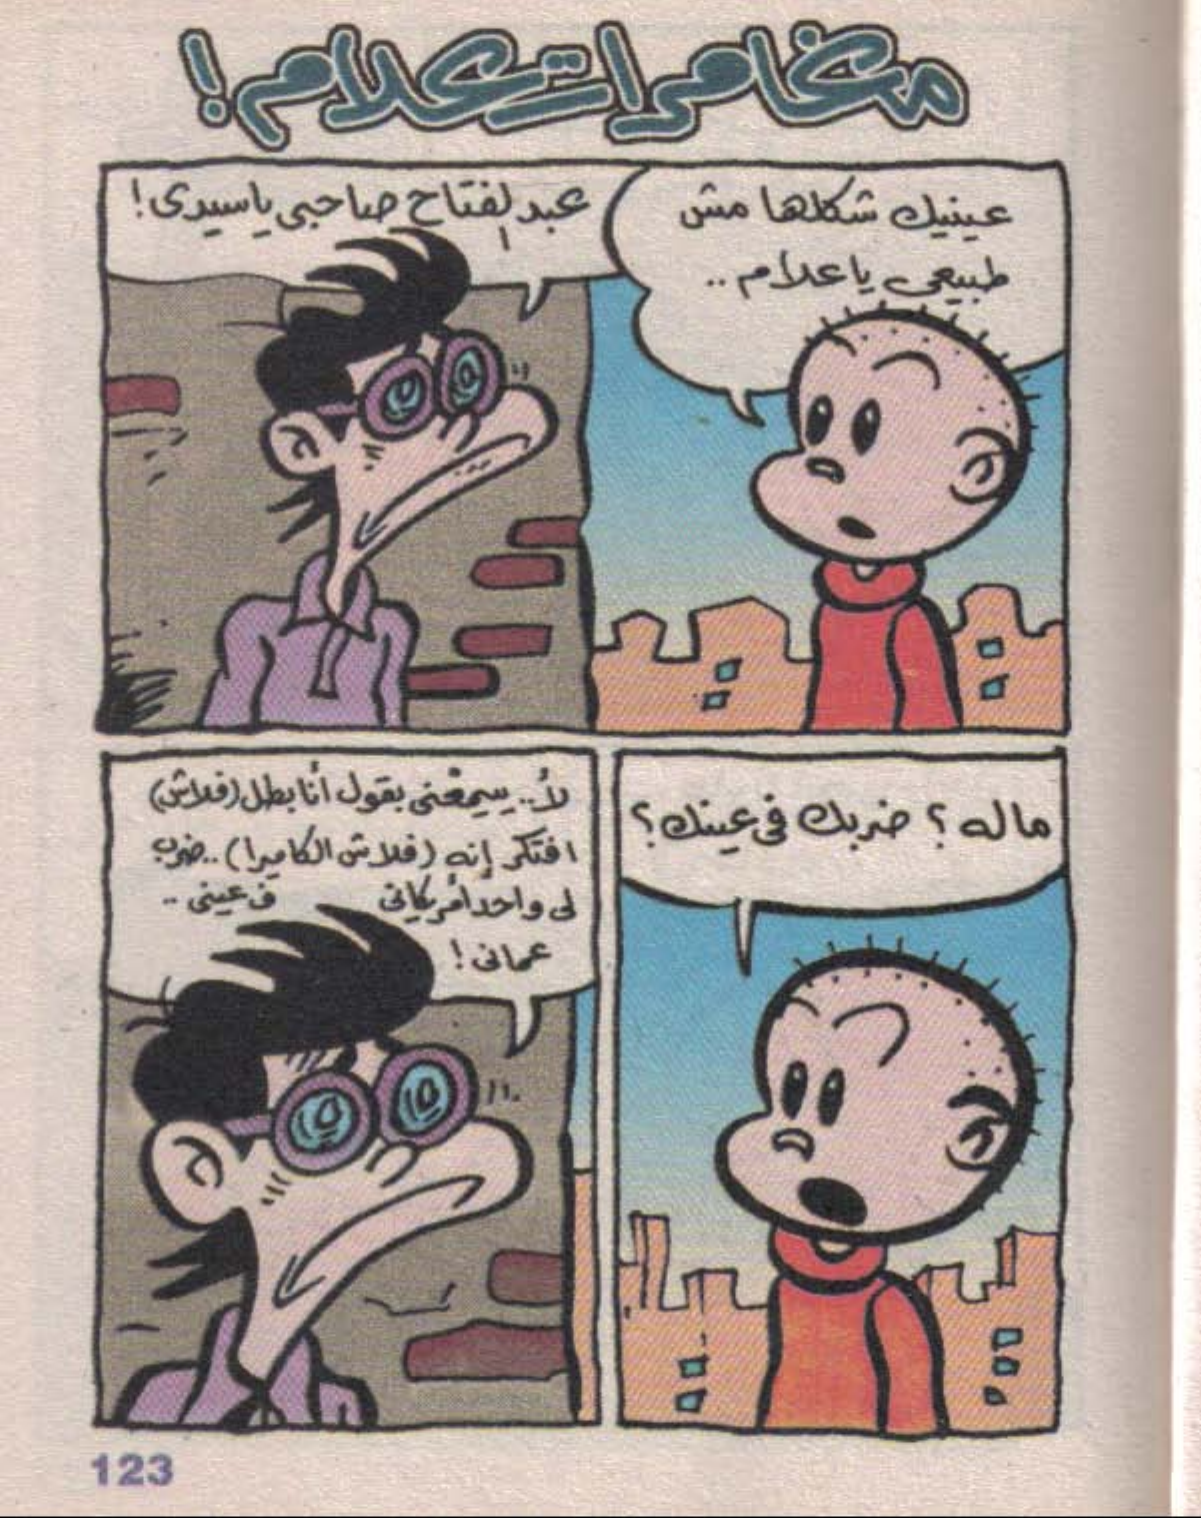 مغامرات علام!
عينيك شكلها مش
طبيعى ياعلام ..
عبد الفتاح صاحبى ياسيدى!
ماله؟ ضربك فى عينك؟
لأ.. سمعنى بقول أنا بطل (فلاش)
افتكر إنه (فلاش الكاميرا) .. ضرب
لى واحد أمريكانى ف عينى ..
عمانى!
123